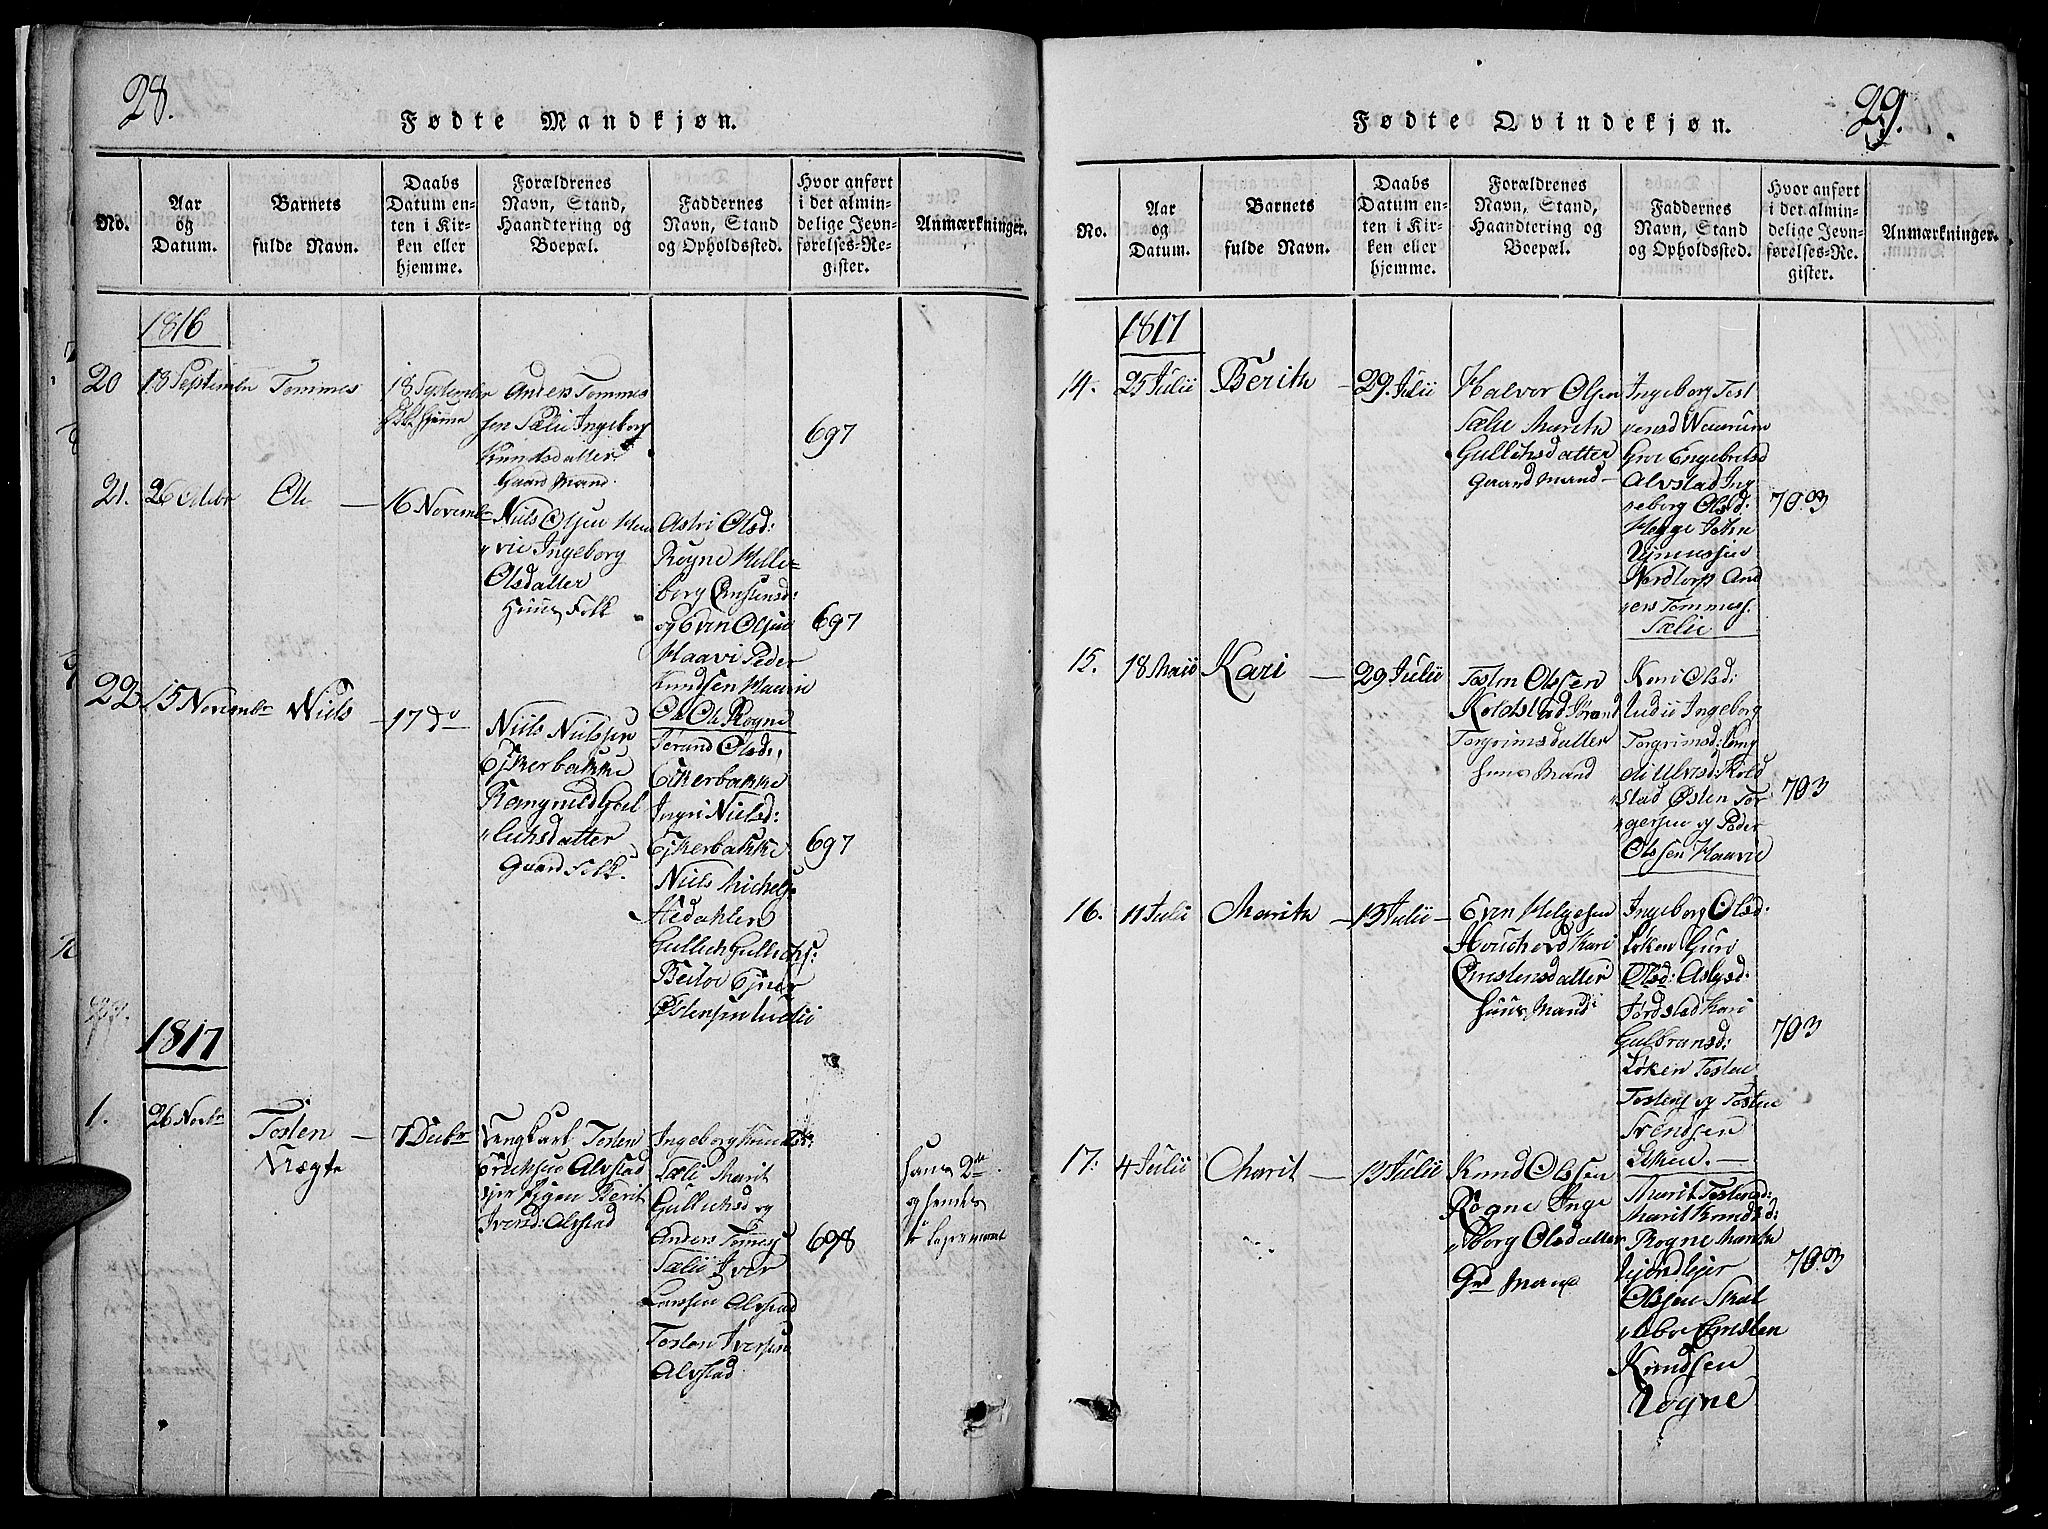 28.
Fødte Mandkjøn.
No.
Aar
og
Datum.
Barnets
fulde Navn.
Daabs
Datum en-
ten i Kir-
ken eller
hjemme.
Forældrenes
Navn, Stand,
Haandtering og
Boepæl.
Faddernes
Navn, Stand
og Opholdssted.
Hvor anført
i det almin-
delige Jevn-
førelses-Re-
gister.
Anmærkninger.
1816
20
18 September
Tommes
18 September
Anders Tommes
sen Sælie Ingeborg
Knudsdatter
Gaard Mand
697
21.
26 Octobr
Ole
16 Novembr
Niels Olsen
Ingeborg
Olsdatter
Huus Folk
Astri Olsd:
Rogne
og Even Olsen
Haavi Peder
Knudsen Haavie
Ole Ole Rogne
697
22
15 Novembr
Niels
17 Do
Niels Nielssen
Ejkerbakke
Rangnild Gul
"lichsdatter
Gaard Folk.
Jørand Olsd:
Ejkerbakke
Ingri Nielsd:
Ejkerbakke
Niels Michels
Hedahlen
Gullich Gullichs:
Beitoe Ejner
Østensen Ludii
697
1817
1.
26 Novbr
Tosten
Nægte
7 Decbr
Tosten
Erichsen Alvstad
Pigen Berit
Iversd: Alvstad
Ingeborg
Sælie Marit
Gullichsd og
Anders Tomess
Sælie Iver
Larssen Alvstad
Tosten Iversen
Alvstad
698
hans 2de
og hendes
29.
Fødte Qvindekjøn.
No.
Aar
og
Datum.
Barnets
fulde Navn.
Daabs
Datum en-
ten i Kir-
ken eller
hjemme.
Forældrenes
Navn, Stand,
Haandtering og
Boepæl.
Faddernes
Navn, Stand
og Opholdssted.
Hvor anført
i det almin-
delige Jevn-
førelses-Re-
gister.
Anmærkninger.
1817
14.
25 Julii
Berith
29. Julii
Halvor Olsen
Sælie Marith
Gullichsdatter
Gaard Mand
Ingeborg Tost
"ensd
Engebretsd
Alvstad Ing
"eborg Olsd:
Hegge John
Nordtorp And
"ers Tommess.
Sælie
703
15.
18 Maii
Kari
29 Julii
Tosten Olssen
Koldstad Jørand
Torgrimsdatter
Huus Mand
Kari Olsd:
Ludii Ingeborg
Torgrimsd: Ing
di Ulvesd: Kold
"stad Østen Tor
"gersen og Peder
Olssen Haavie
703
16.
11 Julii
Marith
13 Julii
Even Helgesen
Kari
Christensdatter
Huus Mand
Ingeborg Olsd:
Løken Guri
Olsd:
Jordstad Kari
Gulbransd:
Løken Tosten
Tostens og Tosten
Svendsen
Løken.
703
17:
4 Julii
Marit
13 Julii
Knud Olssen
Rogne Inge
"borg Olsdatter
Grd Mand
Marit Tostensd:
Marit Knudsd:
Rogne Marith
Olssen Skat
"tebo Christen
Knudsen
Rogne
703